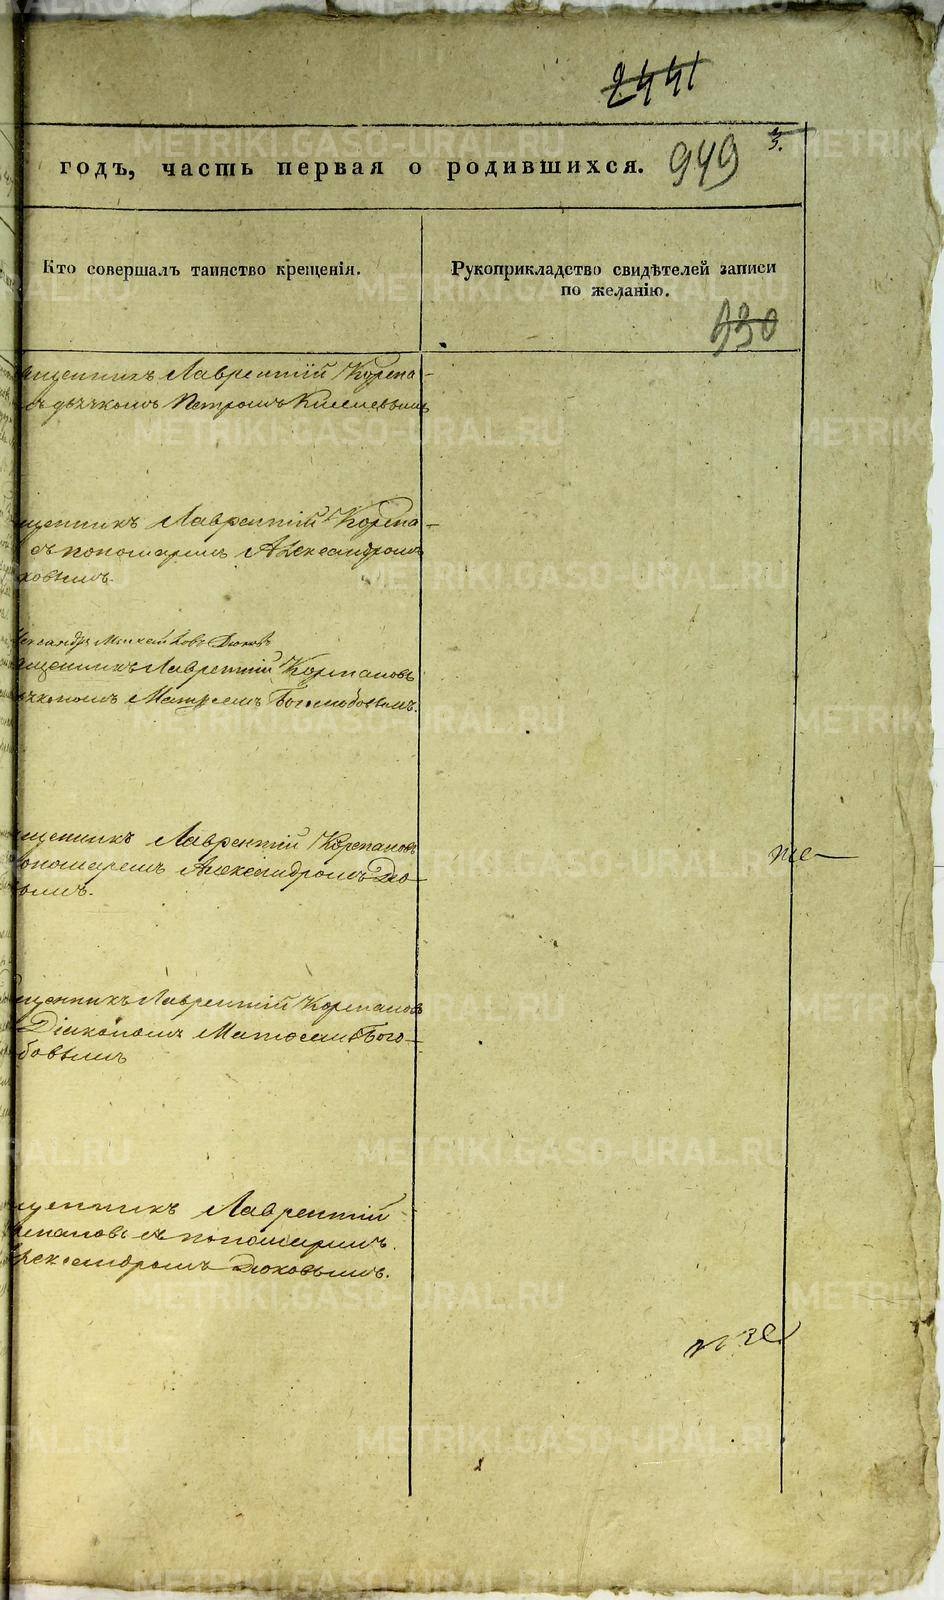 2441
годъ, часть первая о родившихся. 949 3.
Кто совершалъ таинство крещенія.
Рукоприкладство свидѣтелей записи
по желанію.
930
щенникъ Лаврентій Корепа-
съ дьячкомъ Петромъ Киселевымъ
щенникъ Лаврентій Корепа-
съ пономаремъ Александромъ
ковымъ.
щенникъ Лаврентій Корепановъ
Боголюбовымъ.
щенникъ Лаврентій Корепановъ
пономаремъ Александромъ Дю-
вымъ.
щенникъ Лаврентій Корепановъ
Діакономъ Матѳеемъ Бого-
бовымъ
щенникъ Лаврентій
репановъ съ пономаремъ
лександромъ Дюковымъ.
METRIKI.GASO-URAL.RU